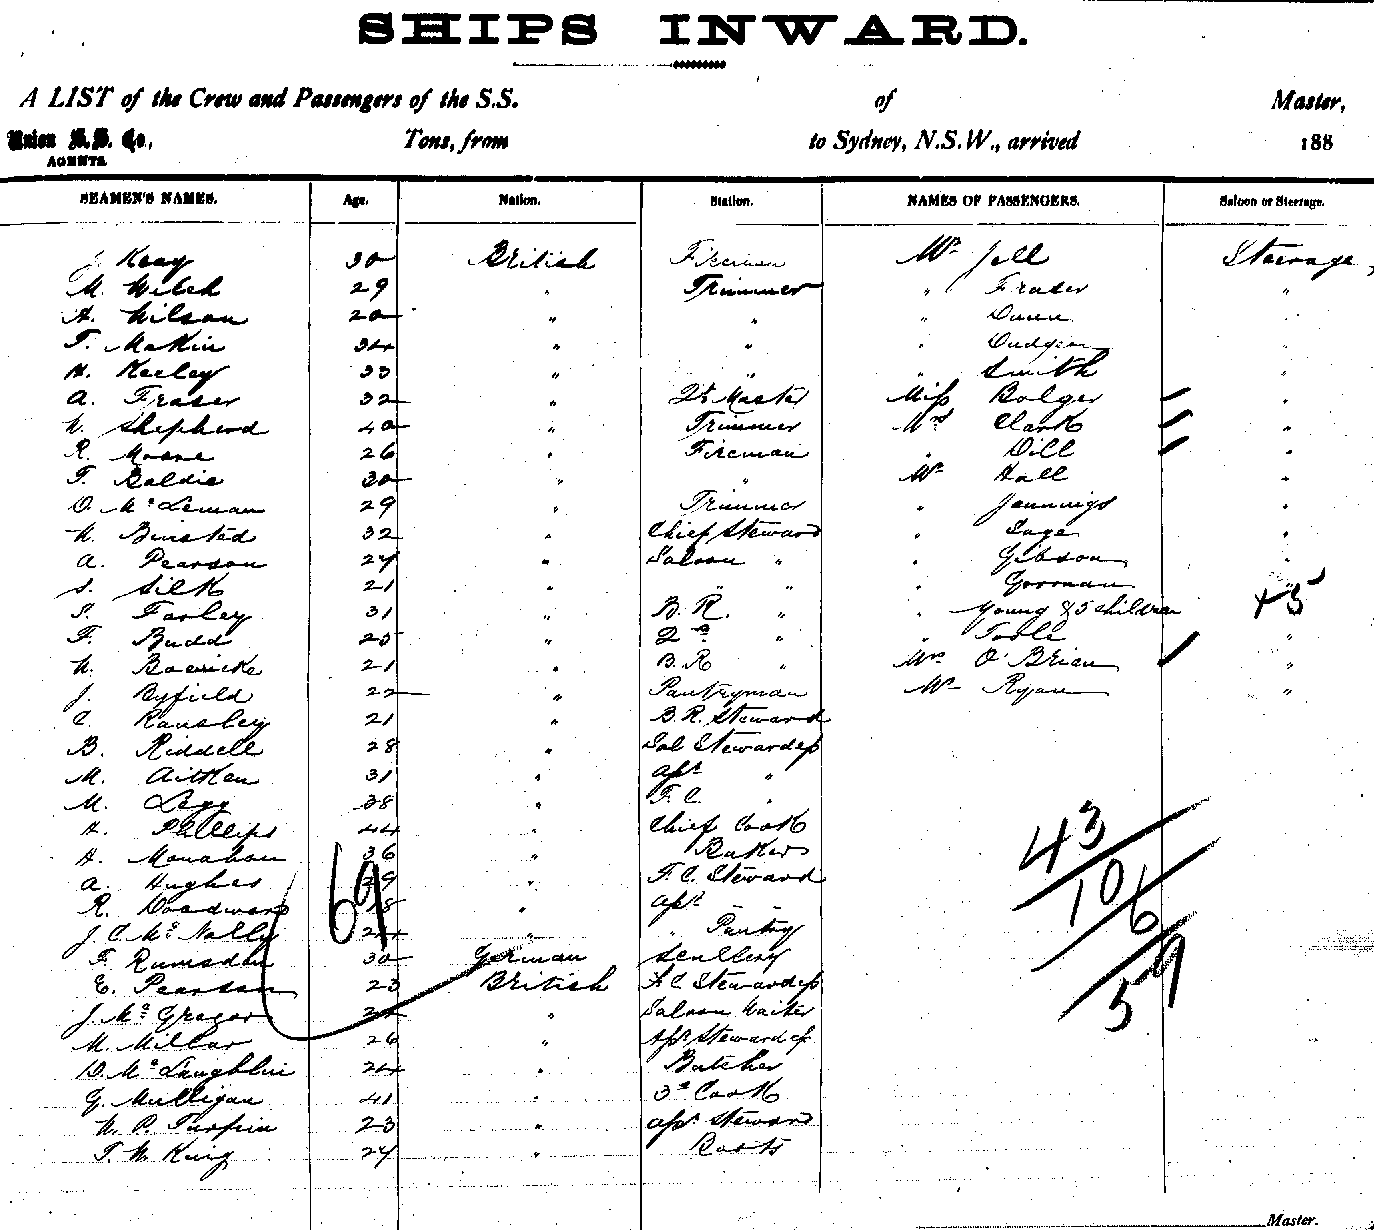 SHIPS INWARD.
A LIST of the Crew and Passengers of the S.S. of Master,
Union S.S. Co., Tons, from to Sydney, N.S.W., arrived 188
AGENTS.
SEAMEN'S NAMES. Age. Nation. Station. NAMES OF PASSENGERS. Saloon or Steerage.
J. Keay 30 British Fireman Mr Jell Steerage
M. Welch 29 " Trimmer " Fraser "
A. Wilson 20 " " " Dunn "
T. Makin 34 " " " Dudgeon "
H. Keeley 33 " " " Smith "
A. Fraser 32 " Qr Master Miss Bolger "
W. Shepherd 40 " Trimmer Mrs Clark "
R. Moore 26 " Fireman " Dill "
T. Baldie 30 " " Mr Hall "
D. McLeman 29 " Trimmer " Jennings "
W. Binsted 32 " Chief Steward " Sage "
A. Pearson 24 " Saloon " " Gibson "
S. Silk 21 " " " " Gorman "
S. Farley 31 " B.R. " " Young & 5 children + 5
F. Budd 25 " 2nd " " Toole "
W. 21 " B.R. " Mrs O'Brien "
J. Byfield 22 " Pantryman Mr Ryan "
C. Ransley 21 " B.R. Steward
B. Riddell 28 " Sal Stewardess
M. Aitken 31 " asst "
M. Legg 38 " F.C. "
H. Phillips 44 " Chief Cook
H. Monahan 36 " Baker
A. Hughes 29 " F.C. Steward
R. Woodward 18 " asst " "
J.C. McNally 24 " " Pantry
F. Rumsden 30 German Scullery
E. Pearson 23 British F.C. Stewardess
J. McGregor " Saloon Waiter
M. Millar 26 " asst Stewardess
D. McLaughlin 24 " Butcher
G. Mulligan 41 " 3rd Cook
W. P. Turpin 23 " asst Steward
T. W. King 24 " Boots
69
43
106
59
Master.